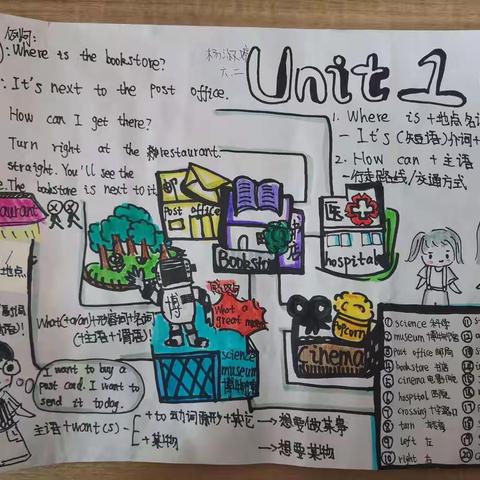 Unit 1
Where is the bookstore?
It's next to the post office.
How can I get there?
Turn right at the restaurant.
straight. You'll see the
The bookstore is next to it
1. Where is +地点名词
- It's (短语)介词+
2. How can + 主语
-行走路线/交通方式
post office
Bookstore
医
hospital
What (+a/an)+形容词+名词
(+主语+谓语)!
博
感叹句
What a
great
science
museum
博物馆
Popcorn
Cinema
I want to buy a
post card. I want to
send it today.
主语+want(s)-
+ to 动词原形+其它 → 想要做某事
+某物 → 想要某物
地点
① science 科学
② museum 博物馆
③ post office 邮局
④ bookstore 书店
⑤ cinema 电影院
⑥ hospital 医院
⑦ crossing 十字路口
⑧ turn 转弯
⑨ left 左
⑩ right 右